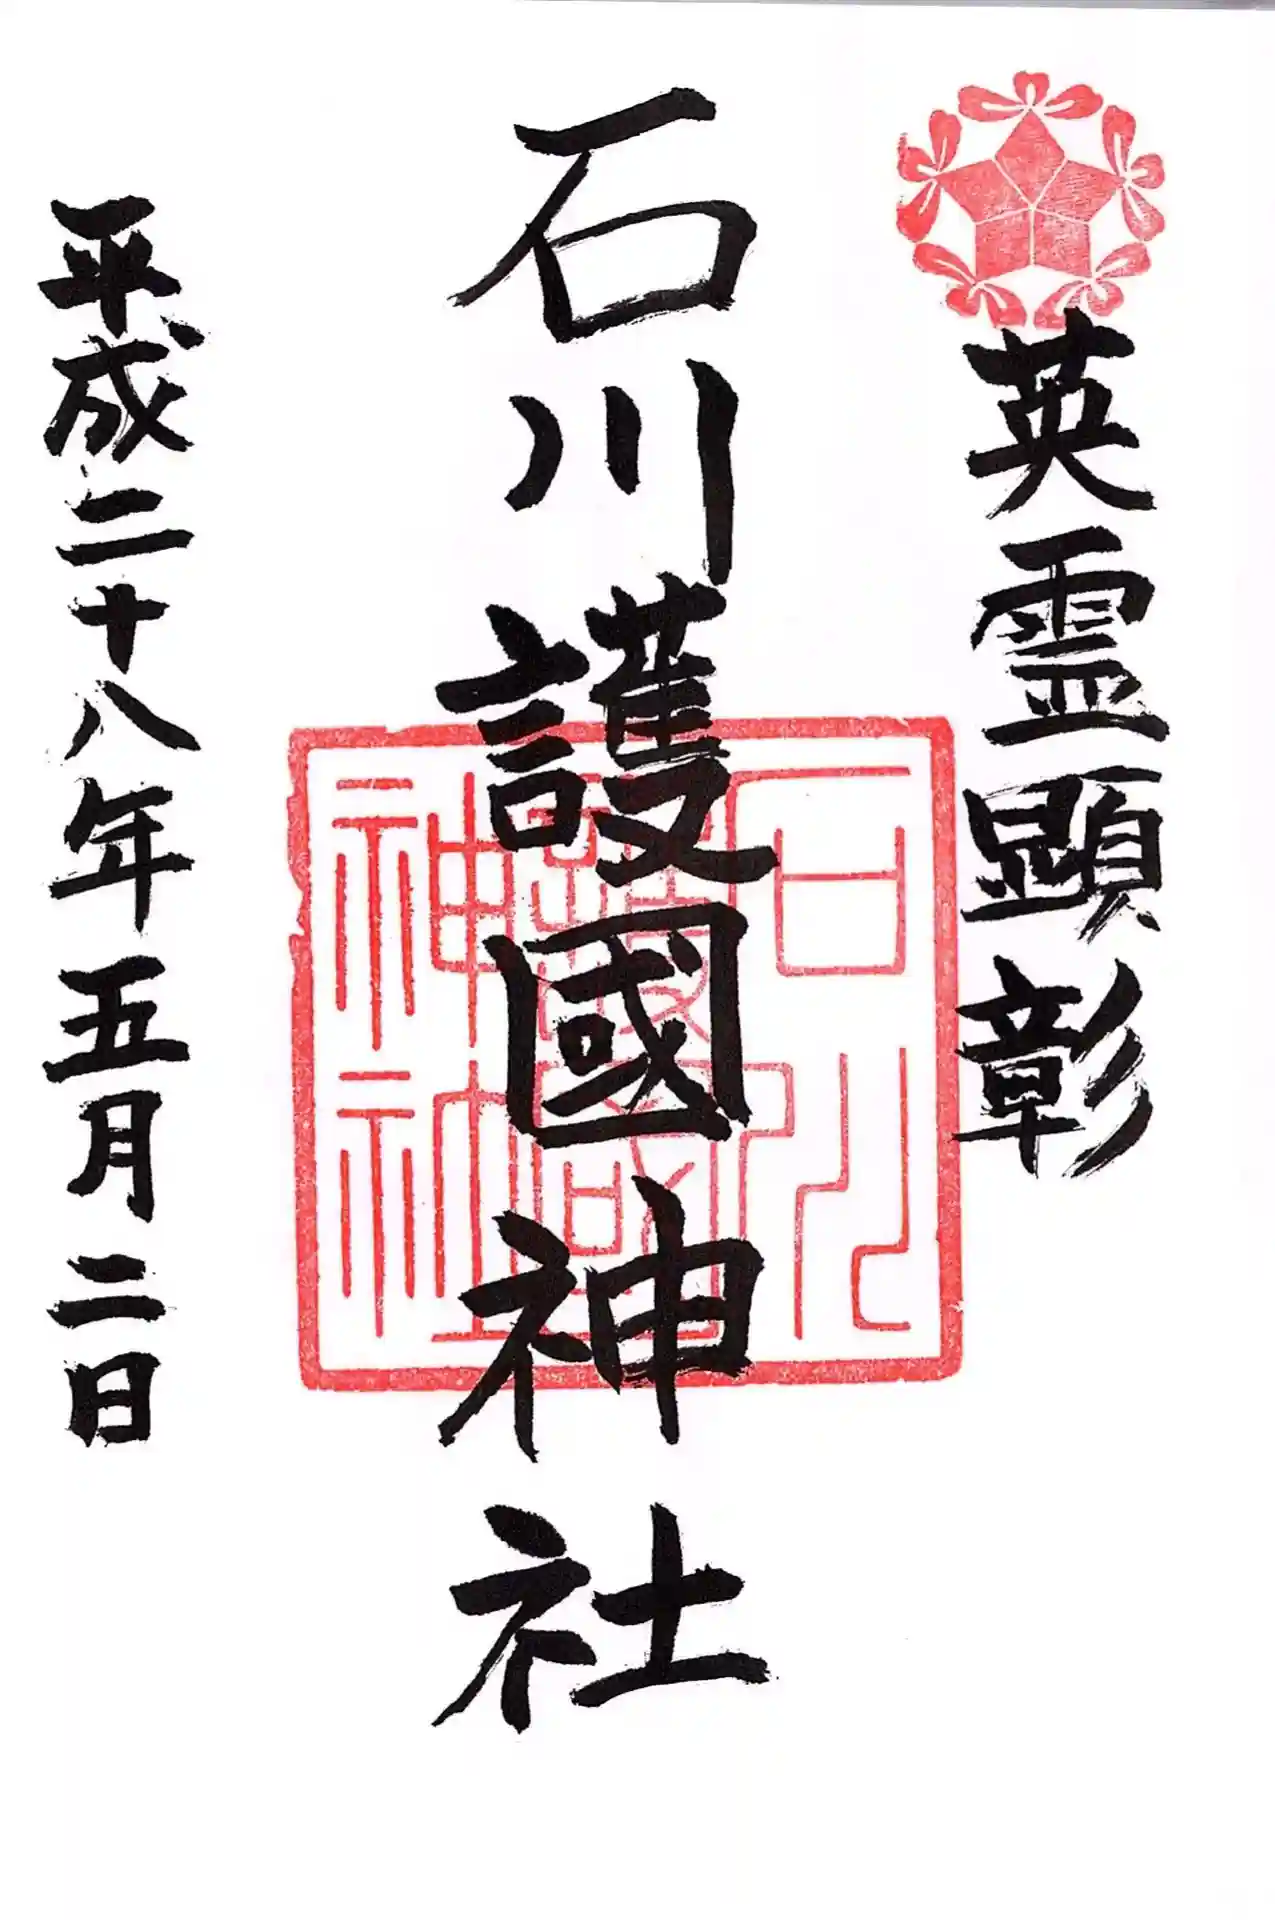 英霊顕彰
石川護國神社
平成二十八年五月二日
石川
護國
神社